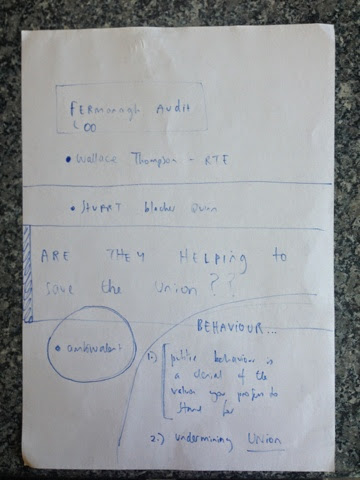 FERmanagh Audit
Loo
• Wallace Thompson - RTE
• Stuart blocker
ARE THEY HELPING to
save the union??
BEHAVIOUR...
• ambivalent
1.) public behaviour is
a denial of the
values you profess to
stand for
2.) undermining Union